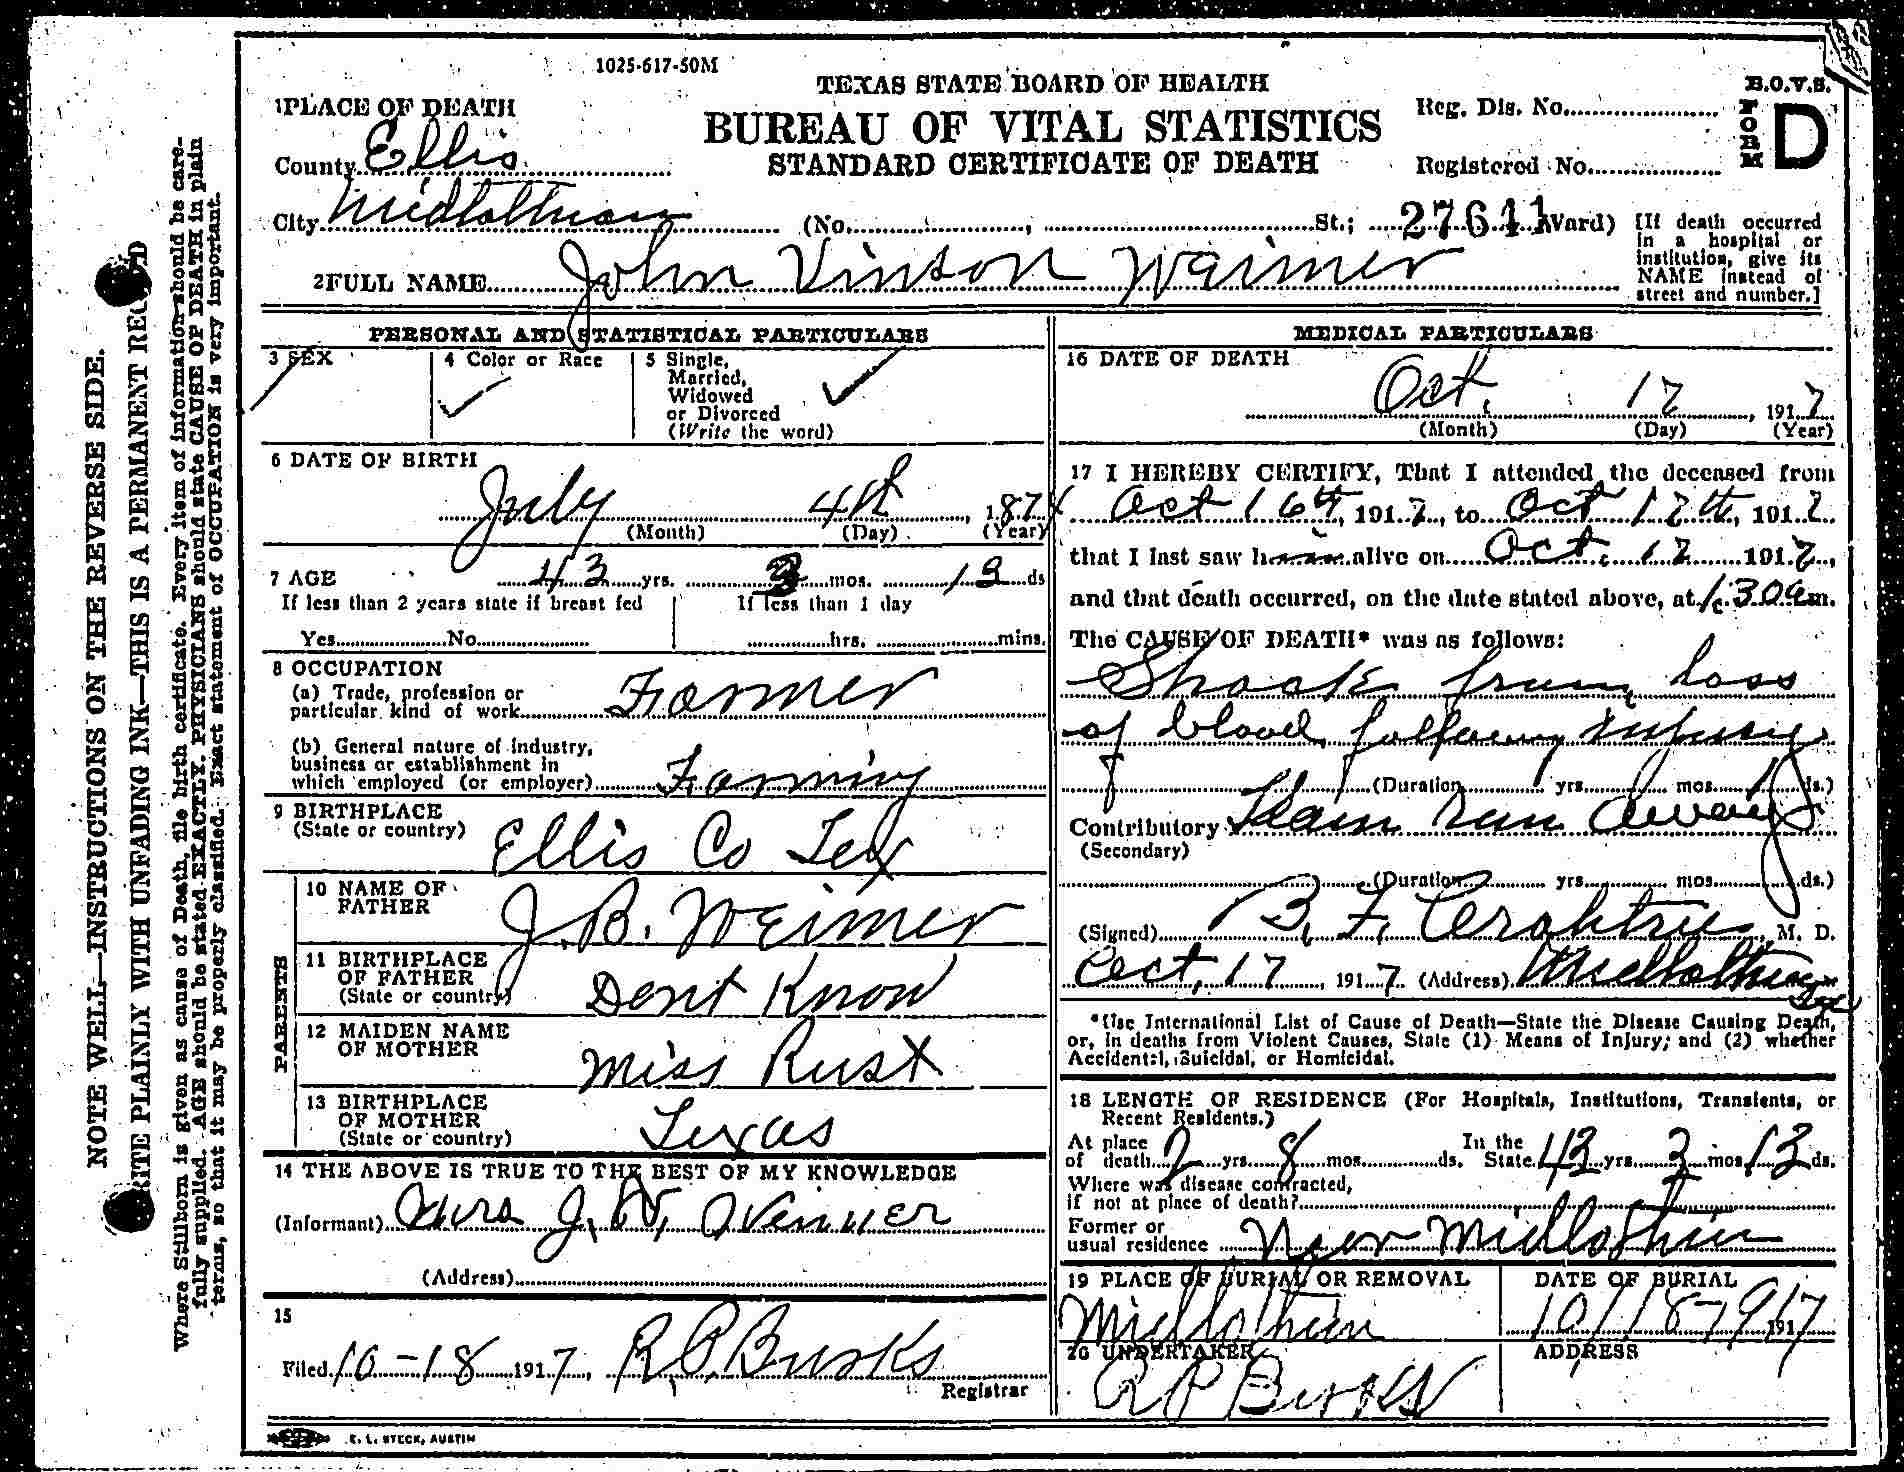 1025-617-50M
TEXAS STATE BOARD OF HEALTH
BUREAU OF VITAL STATISTICS
STANDARD CERTIFICATE OF DEATH
Reg. Dis. No.
Registered No.
B.O.V.S.
FORM D
1PLACE OF DEATH
County Ellis
City Midlothian (No. , St.; 27641 Ward)
[If death occurred
in a hospital or
institution, give its
NAME instead of
street and number.]
2FULL NAME John Vinson Weimer
PERSONAL AND STATISTICAL PARTICULARS
3 SEX
4 Color or Race
5 Single,
Married,
Widowed
or Divorced
(Write the word)
6 DATE OF BIRTH
July 4th, 187
(Month) (Day) (Year)
7 AGE 43 yrs. 3 mos. 13 ds
If less than 2 years state if breast fed
Yes No
If less than 1 day
hrs. mins.
8 OCCUPATION
(a) Trade, profession or
particular kind of work Farmer
(b) General nature of industry,
business or establishment in
which employed (or employer) Farming
9 BIRTHPLACE
(State or country) Ellis Co Tex
PARENTS
10 NAME OF
FATHER J. B. Weimer
11 BIRTHPLACE
OF FATHER
(State or country) Dont Know
12 MAIDEN NAME
OF MOTHER Miss Rust
13 BIRTHPLACE
OF MOTHER
(State or country) Texas
14 THE ABOVE IS TRUE TO THE BEST OF MY KNOWLEDGE
(Informant) Mrs J. V. Weimer
(Address)
15
Filed 10-18 1917, R. P. Burks
Registrar
MEDICAL PARTICULARS
16 DATE OF DEATH
Oct. 17, 1917
(Month) (Day) (Year)
17 I HEREBY CERTIFY, That I attended the deceased from
Oct 16th, 1917, to Oct 17th, 1917
that I last saw him alive on Oct. 17 1917,
and that death occurred, on the date stated above, at 1:30 am.
The CAUSE OF DEATH* was as follows:
Shock from loss
of blood following injury
(Duration yrs. mos. 1 ds.)
Contributory Team run away
(Secondary)
(Duration yrs. mos. ds.)
(Signed) B. F. Crabtree, M. D.
Oct. 17, 1917 (Address) Midlothian Tex
*Use International List of Cause of Death—State the Disease Causing Death,
or, in deaths from Violent Causes, State (1) Means of Injury; and (2) whether
Accidental, Suicidal, or Homicidal.
18 LENGTH OF RESIDENCE (For Hospitals, Institutions, Transients, or
Recent Residents.)
At place
of death 2 yrs. 8 mos. ds. In the State 43 yrs. 3 mos. 13 ds.
Where was disease contracted,
if not at place of death?
Former or
usual residence Near Midlothian
19 PLACE OF BURIAL OR REMOVAL
Midlothian
DATE OF BURIAL
10/18-1917 191
20 UNDERTAKER
R P Burks
ADDRESS
E. L. STECK, AUSTIN
NOTE WELL—INSTRUCTIONS ON THE REVERSE SIDE.
WRITE PLAINLY WITH UNFADING INK—THIS IS A PERMANENT RECORD
Where Stillborn is given as cause of Death, file birth certificate. Every item of information should be care-
fully supplied. AGE should be stated EXACTLY. PHYSICIANS should state CAUSE OF DEATH in plain
terms, so that it may be properly classified. Exact statement of OCCUPATION is very important.